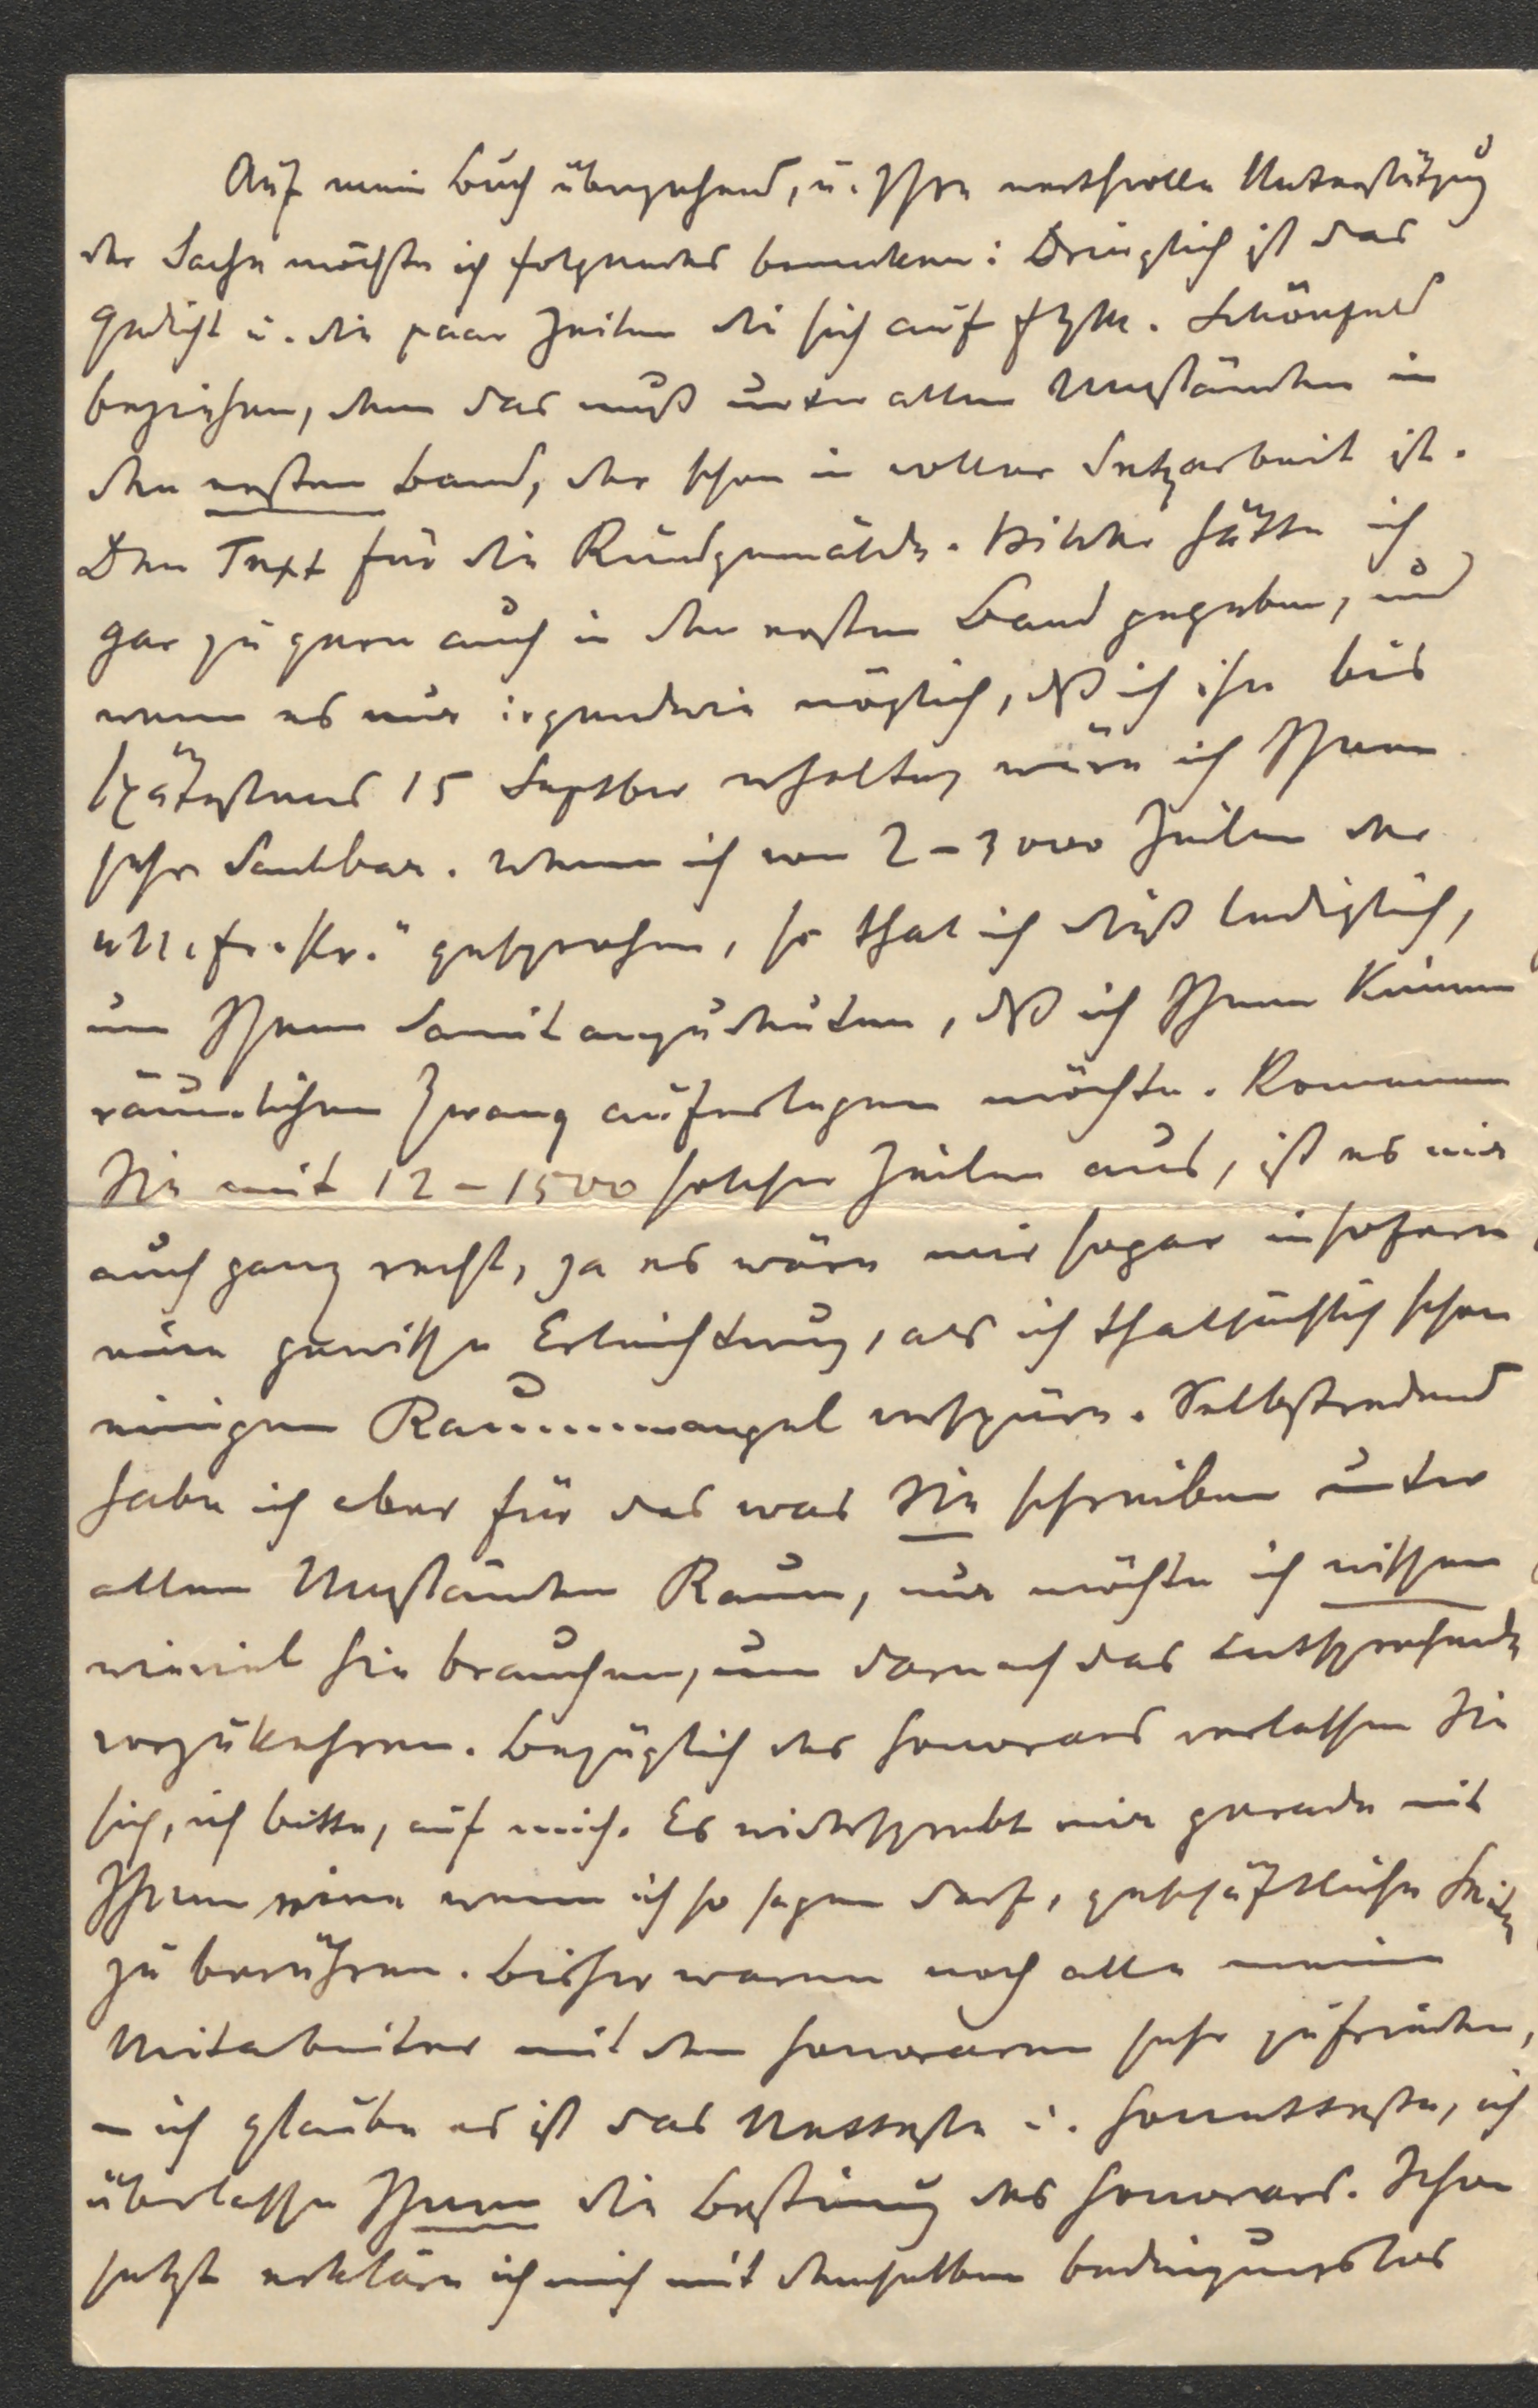 Auf mein Buch übergehend, u. Ihre werthvolle Unterstützung
der Sache möchte ich folgendes bemerken: Dringlich ist das
Gedicht u. die paar Zeilen die sich auf FZM. Schönfeld
beziehen, denn das muß unter allen Umständen in
den ersten Band, der schon in voller Setzarbeit ist.
Den Text für die Rundgemälde-Bilder hätte ich
gar zu gern auch in den ersten Band gegeben, und
wenn es nur irgendwie möglich, dß ich ihn bis
spätestens 15 Septber erhalte, wäre ich Ihnen
sehr dankbar. Wenn ich von 2-3000 Zeilen der
"N. fr. Pr." gesprochen, so that ich dieß lediglich,
um Ihnen damit anzudeuten, dß ich Ihnen keinen
räumlichen Zwang auferlegen möchte. Kommen
Sie mit 12-1500 solcher Zeilen aus, ist es mir
auch ganz recht, ja es wäre mir sogar insofern
eine gewisse Erleichterung, als ich thatsächlich schon
einigen Raummangel verspüre. Selbstredend
habe ich aber für das was Sie schreiben unter
allen Umständen Raum, nur möchte ich wissen
wieviel Sie brauchen, um darnach das Entsprechende
vorzukehren. Bezüglich des Honorars verlassen Sie
sich, ich bitte, auf mich. Es widerstrebt mir gerade mit
Ihnen eine wenn ich so sagen darf, geschäftliche Seite
zu berühren. Bisher waren noch alle meine
Mitarbeiter mit den Honoraren sehr zufrieden,
– ich glaube es ist das Netteste u. Honetteste, ich
überlasse Ihnen die Bestimung des Honorars. Schon
jetzt erkläre ich mich mit demselben bedingungslos